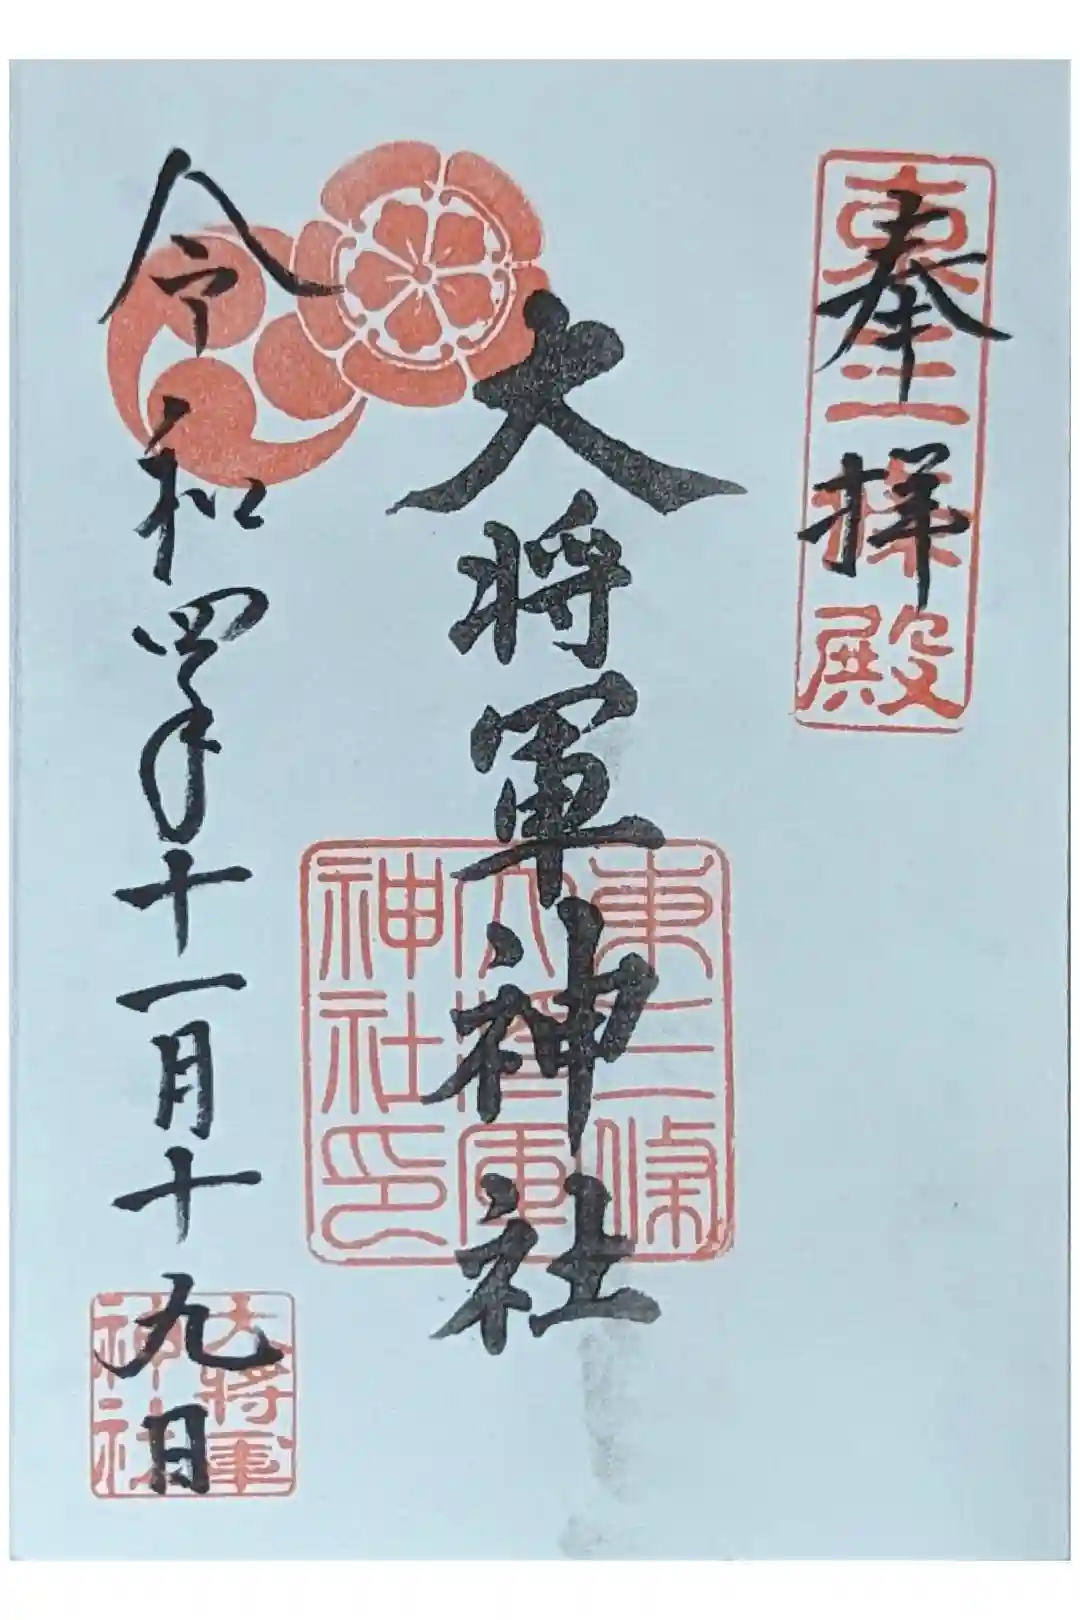 奉拝
東三条殿
大将軍神社
東三條
大將軍
神社印
令和四年十一月十九日
大將軍
神社